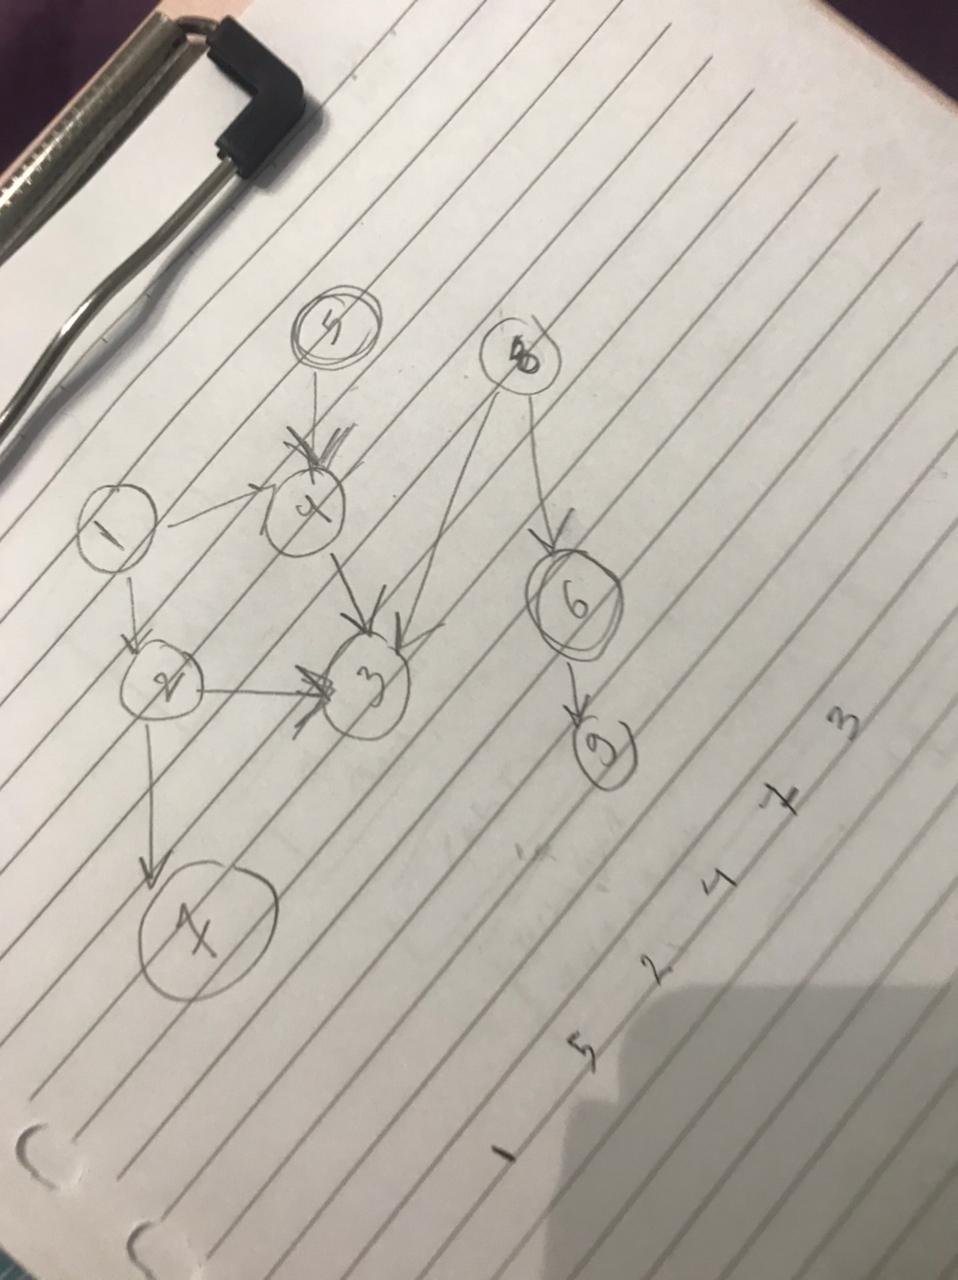 5
1
4
2
3
6
9
7
1 5 2 4 7 3